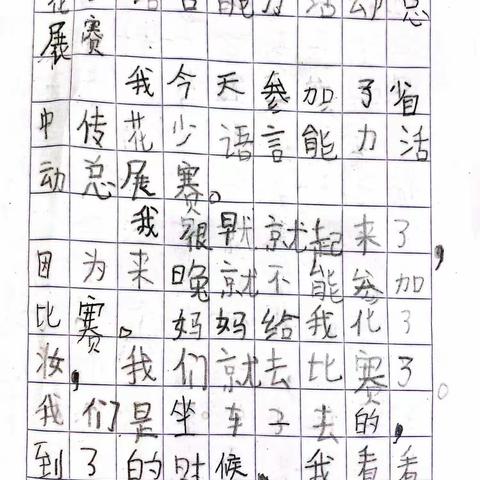 花少语言能力活动总
展赛
我今天参加了省
中传花少语言能力活
动总展赛。
我很早就起来了，
因为来晚就不能参加
比赛。妈妈给我化了
妆，我们就去比赛了。
我们是坐车子去的，
到了的时候，我看看